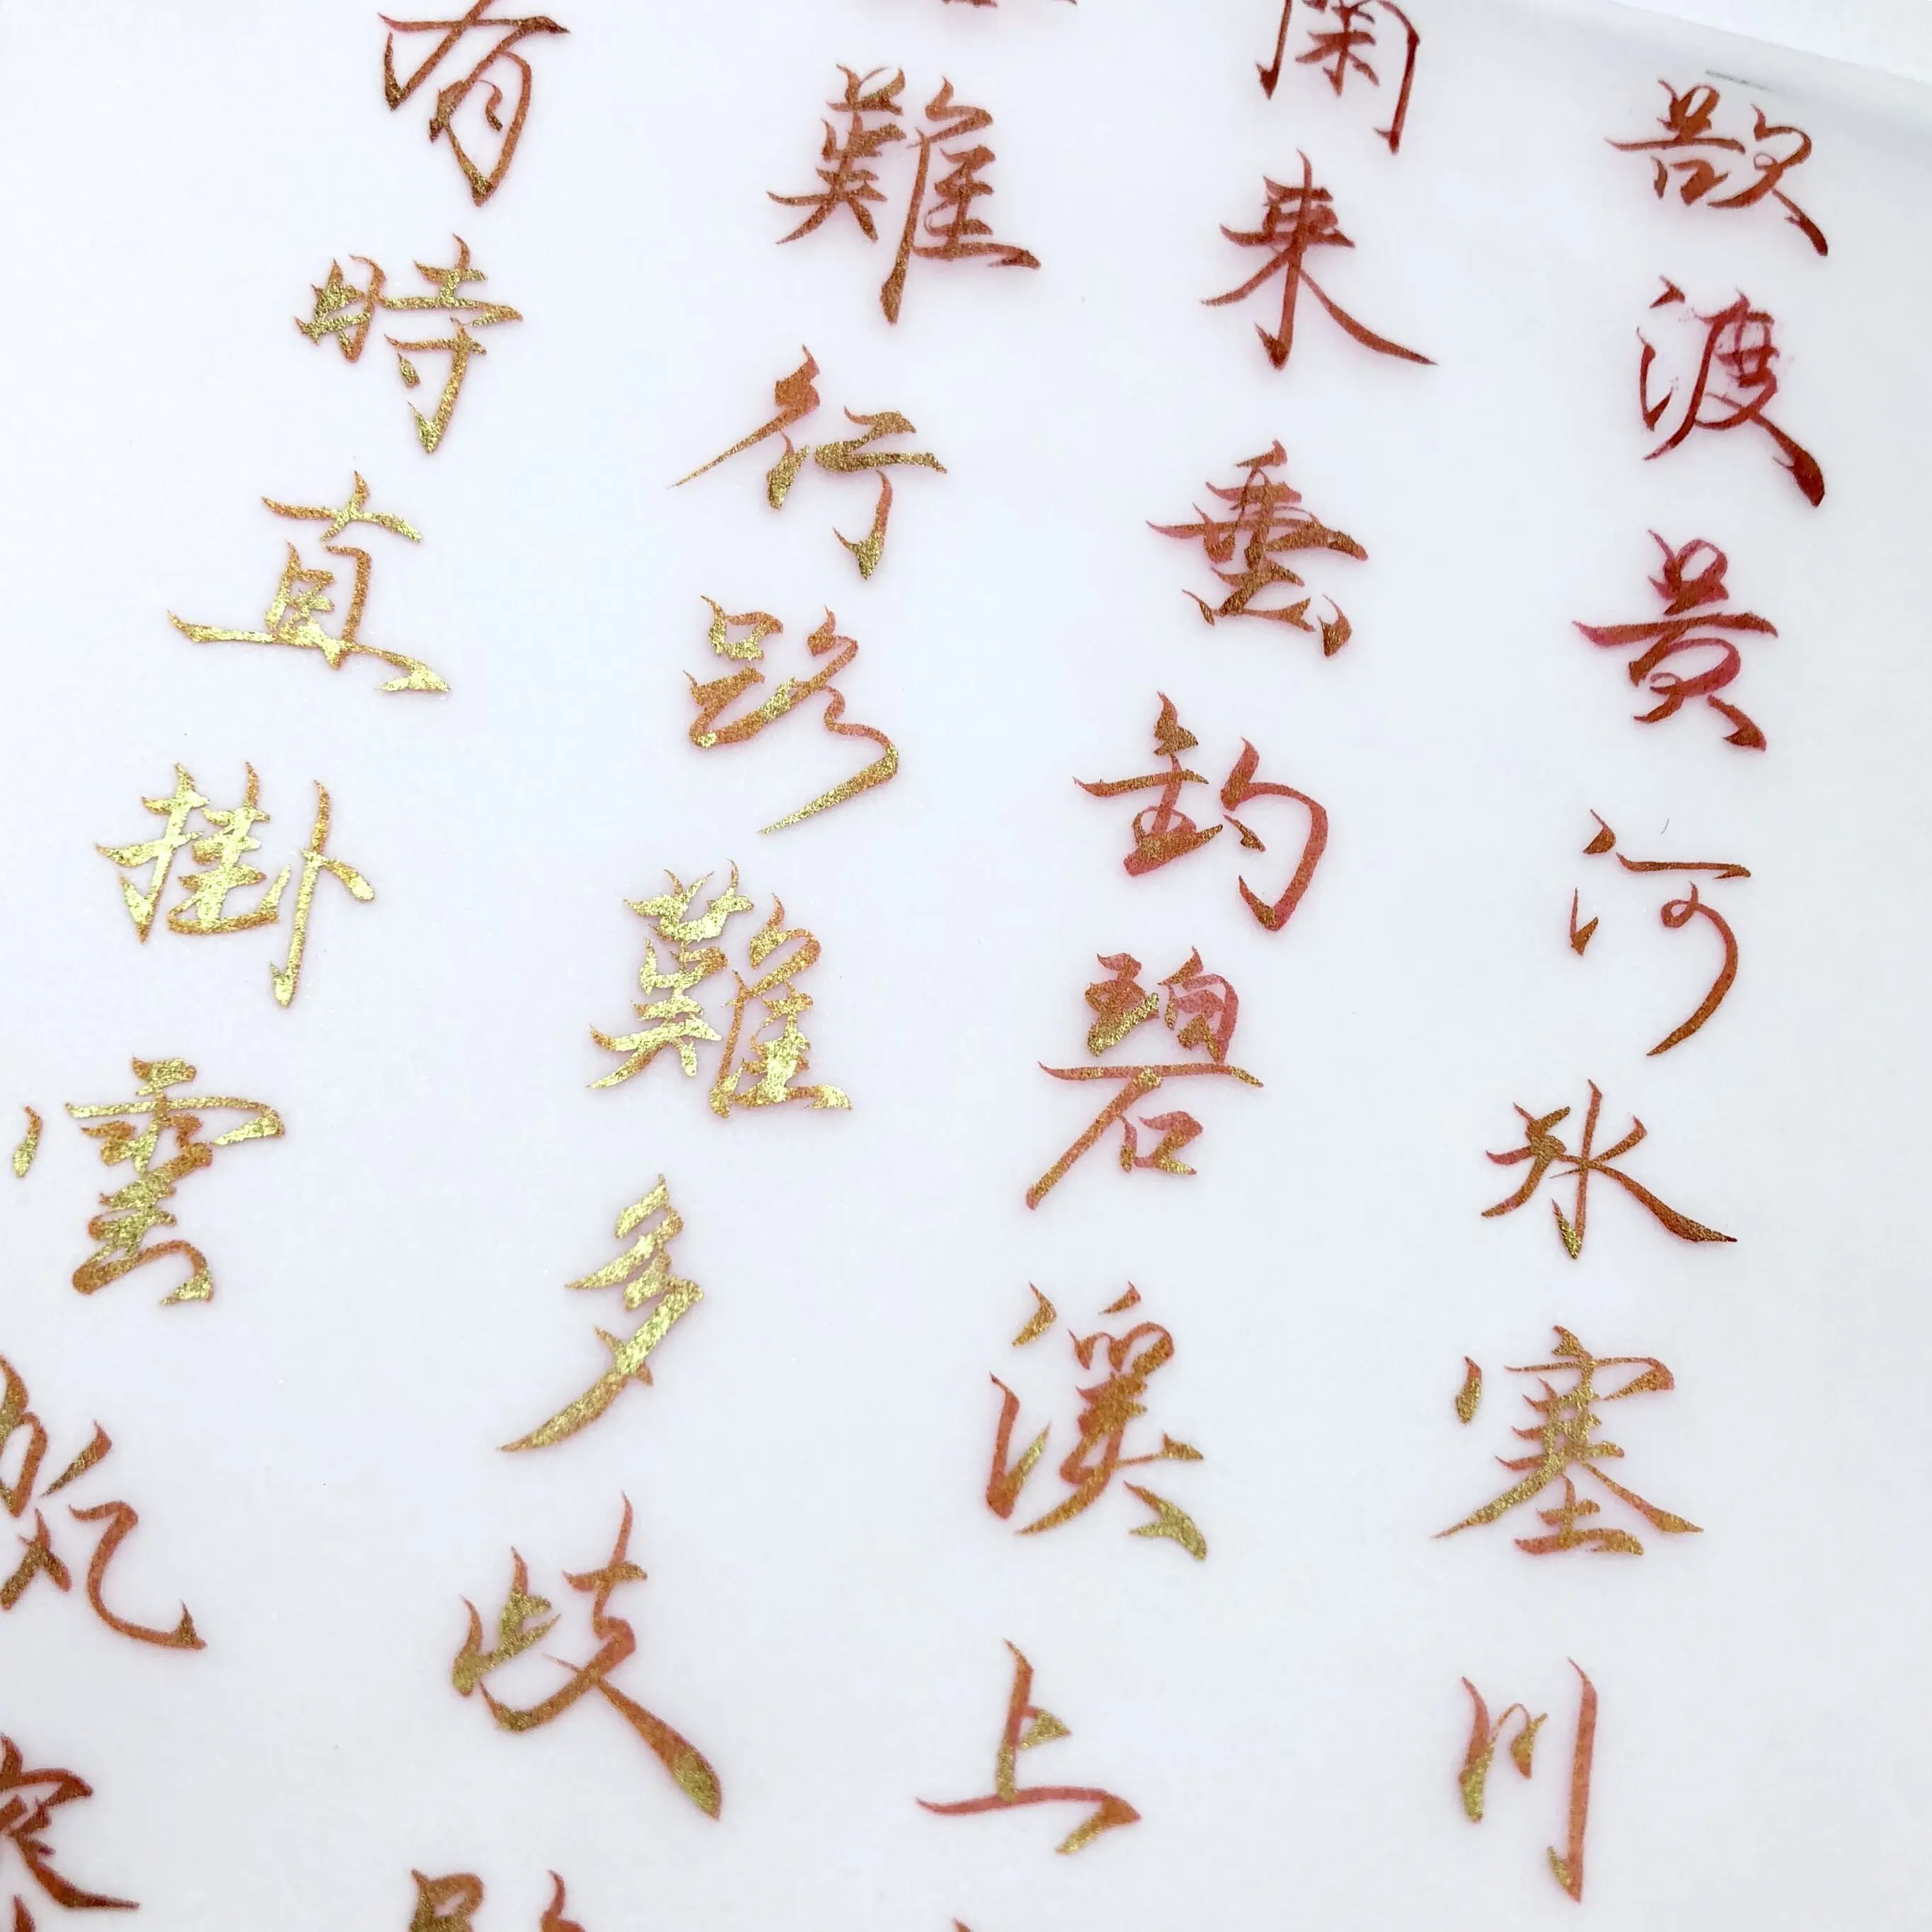 欲渡黃河冰塞川
閑來垂釣碧溪上
難行路難多歧
有時直掛雲帆